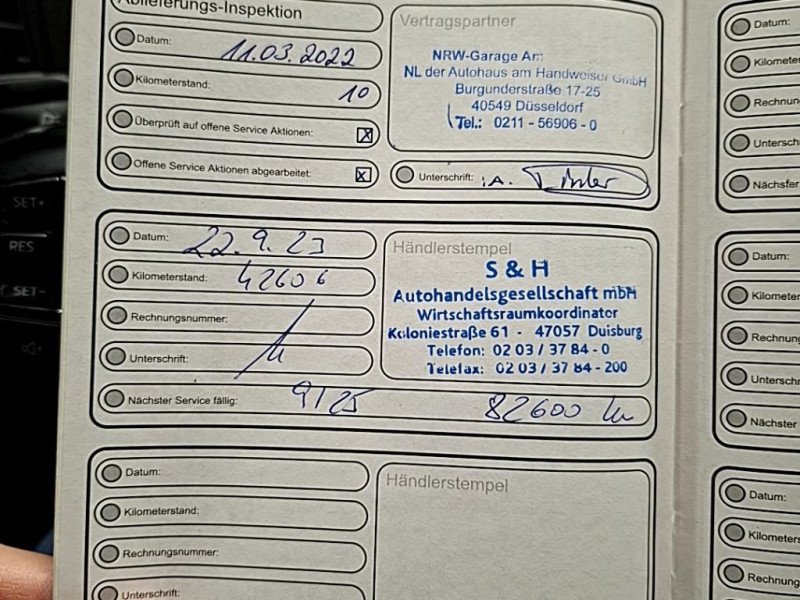 Ablieferungs-Inspektion
Datum: 11.03.2022
Kilometerstand: 10
Überprüft auf offene Service Aktionen: X
Offene Service Aktionen abgearbeitet: X
Vertragspartner
NRW-Garage
NL der Autohaus am Handweiser GmbH
Burgunderstraße 17-25
40549 Düsseldorf
Tel.: 0211 - 56906 - 0
Unterschrift: i.A.
Datum: 22.9.23
Kilometerstand: 42606
Rechnungsnummer:
Unterschrift:
Händlerstempel
S & H
Autohandelsgesellschaft mbH
Wirtschaftsraumkoordinator
Koloniestraße 61 - 47057 Duisburg
Telefon: 02 03 / 37 84 - 0
Telefax: 02 03 / 37 84 - 200
Nächster Service fällig: 9/25 82600 km
Datum:
Kilometerstand:
Rechnungsnummer:
Unterschrift:
Händlerstempel
Datum:
Kilometer
Rechnun
Untersch
Nächster
Datum:
Kilometer
Rechnung
Unterschri
Nächster
Datum:
Kilometers
Rechnung
SET+
RES
SET-